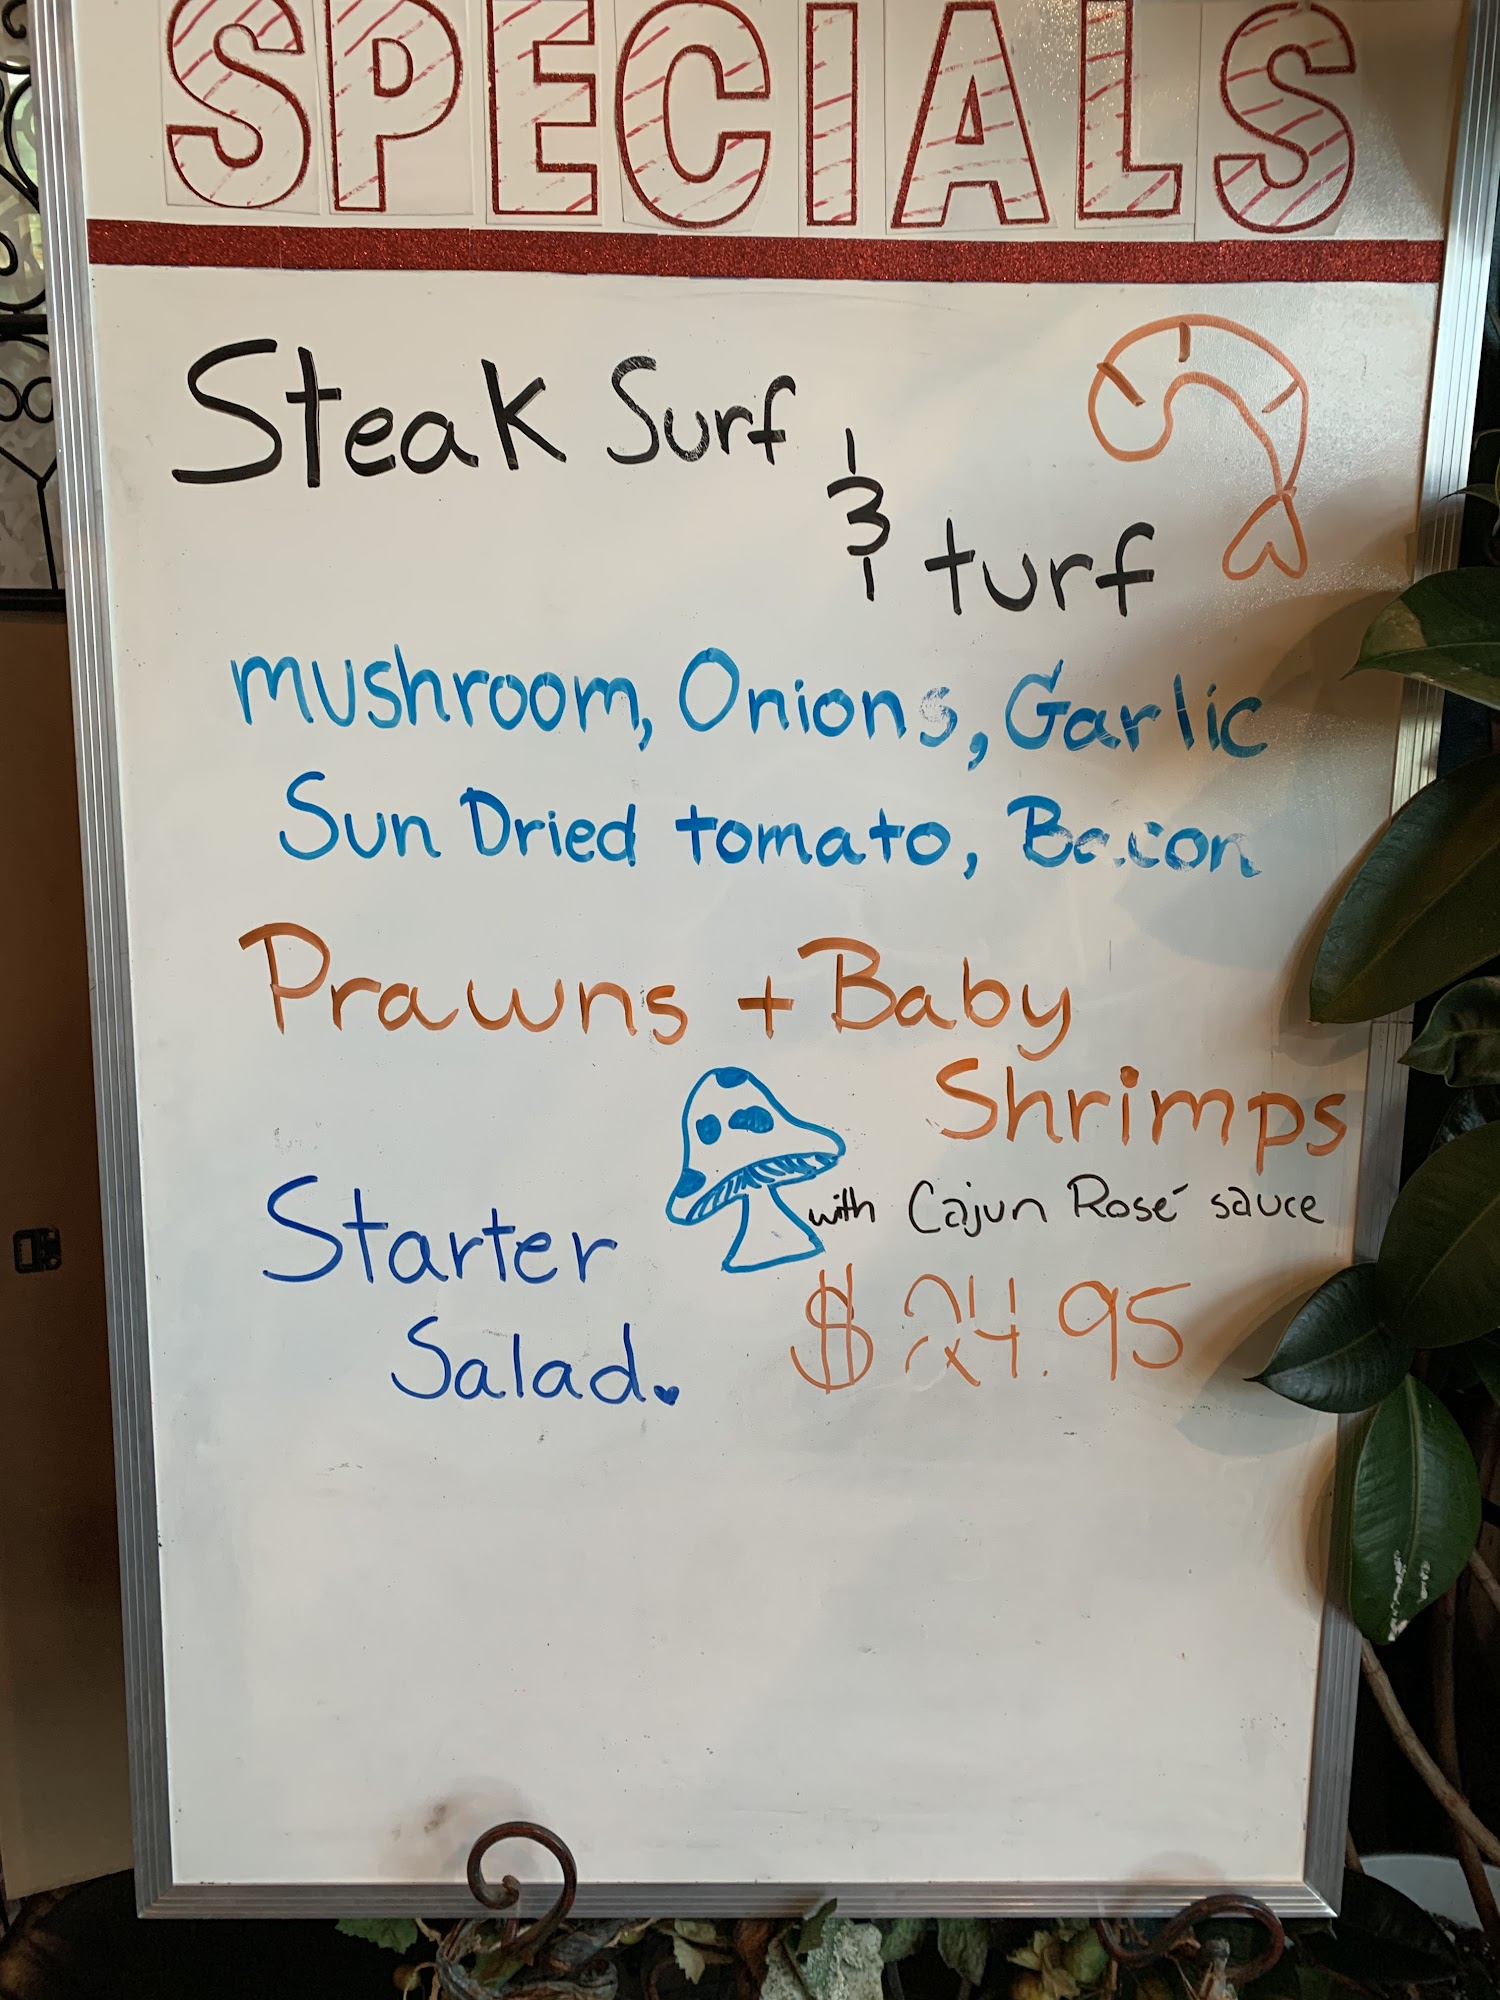 SPECIALS
Steak Surf
&
turf
mushroom, Onions, Garlic
Sun Dried tomato, Bacon
Prawns + Baby
Shrimps
with Cajun Rosé sauce
Starter
Salad.
$24.95